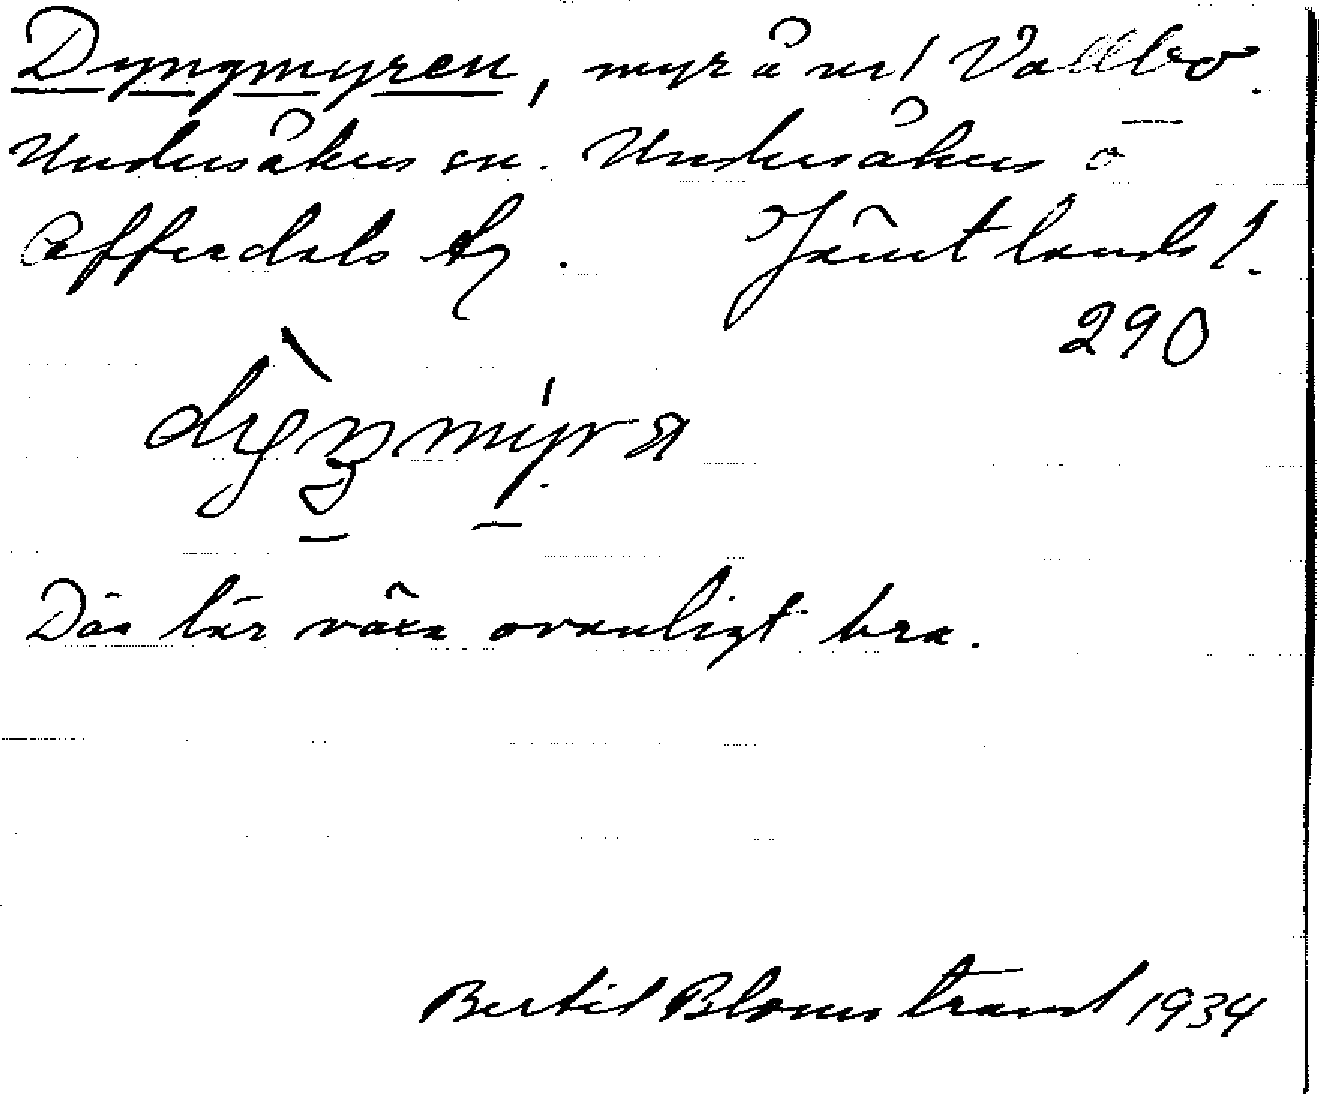 Dyngmyren, myr å nr 1 Vallbo.
Undersåkers sn. Undersåkers o
Offerdals tg. Jämtlands l.
290
Där lär växa ovanligt bra.
Bertil Blomstrand 1934